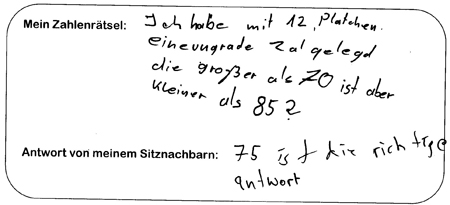 Mein Zahlenrätsel: Ich habe mit 12 Platchen.
eine ungrade Zal gelegd
die großer als 70 ist aber
kleiner als 85?
Antwort von meinem Sitznachbarn: 75 ist die richtige
antwort